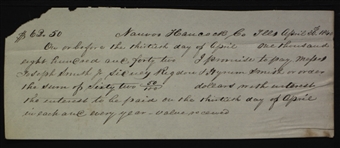 $62.50 Nauvoo Hancock Co Ills April 30 1840
On or before the thirtieth day of April One thousand
eight hundred and forty two I promise to pay Messrs
Joseph Smith Jr Sidney Rigdon & Hyrum Smith or order
the sum of Sixty two 50/100 dollars with interest
the interest to be paid on the thirtieth day of April
in each and every year – value received